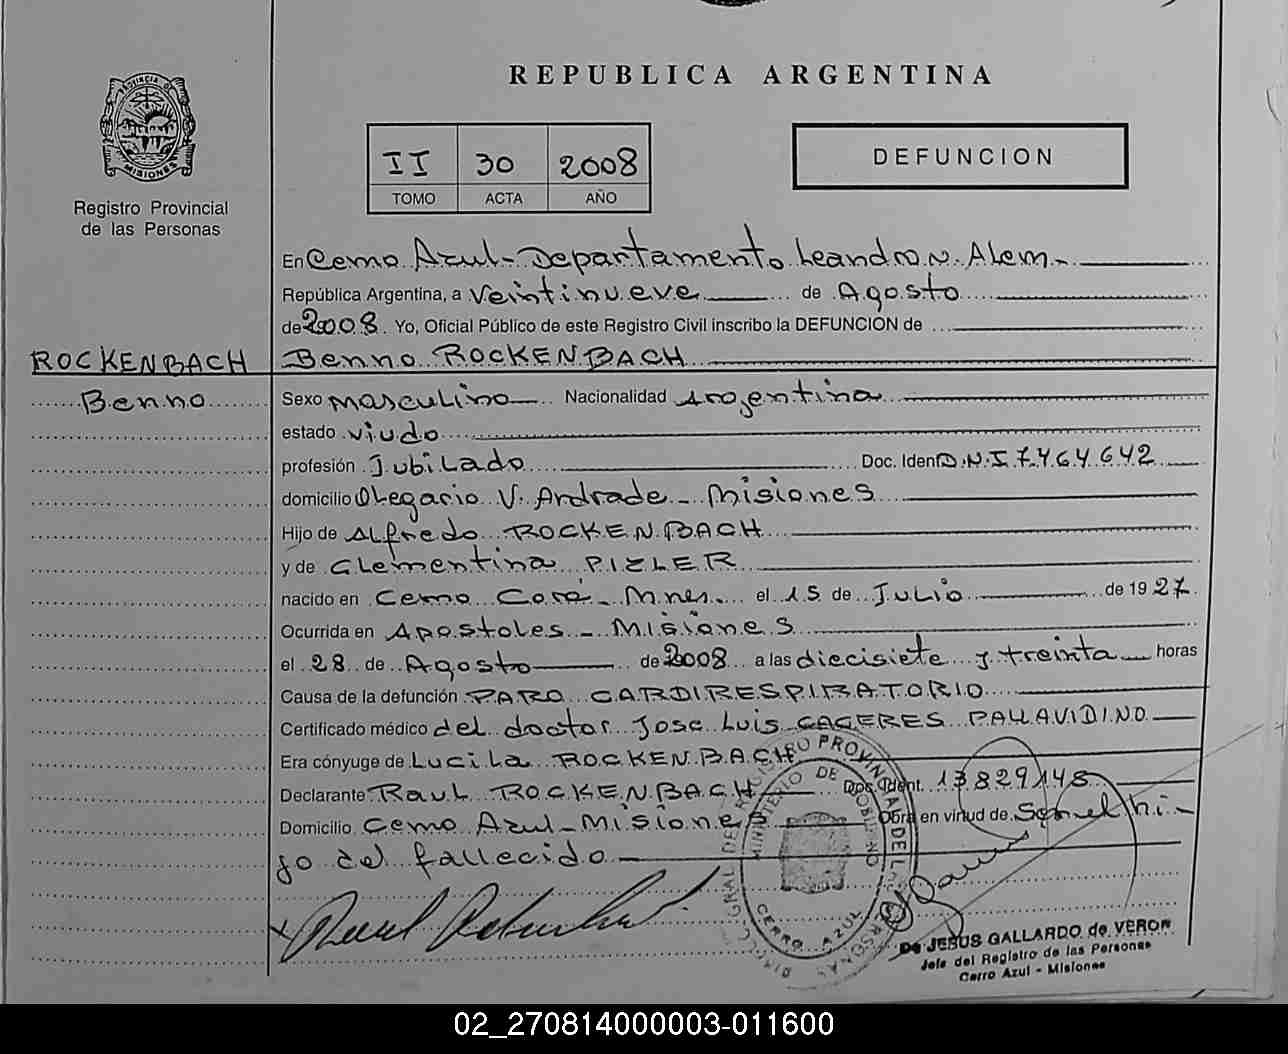 REPUBLICA ARGENTINA
PROVINCIA DE
MISIONES
Registro Provincial
de las Personas
II 30 2008
TOMO ACTA AÑO
DEFUNCION
En Cerro Azul - Departamento Leandro N. Alem.-
República Argentina, a Veintinueve de Agosto
de 2008. Yo, Oficial Público de este Registro Civil inscribo la DEFUNCION de
ROCKENBACH Benno ROCKENBACH
Benno Sexo masculino Nacionalidad Argentina
estado viudo
profesión Jubilado Doc. Ident. D.N.I 7.464.642
domicilio Olegario V. Andrade - Misiones
Hijo de Alfredo ROCKENBACH
y de Clementina PIZLER
nacido en Cerro Corá - Mnes. el 15 de Julio de 1927
Ocurrida en Apostoles - Misiones
el 28 de Agosto de 2008 a las diecisiete y treinta horas
Causa de la defunción PARO CARDIRESPIRATORIO
Certificado médico del doctor Jose Luis CACERES PALLAVIDINO
Era cónyuge de Lucila ROCKENBACH
Declarante Raul ROCKENBACH Doc. Ident. 13829148
Domicilio Cerro Azul - Misiones Obra en virtud de Ser el hi-
jo del fallecido
MINISTERIO DE GOBIERNO
CERRO AZUL
De JESUS GALLARDO de VERON
Jefe del Registro de las Personas
Cerro Azul - Misiones
02_270814000003-011600